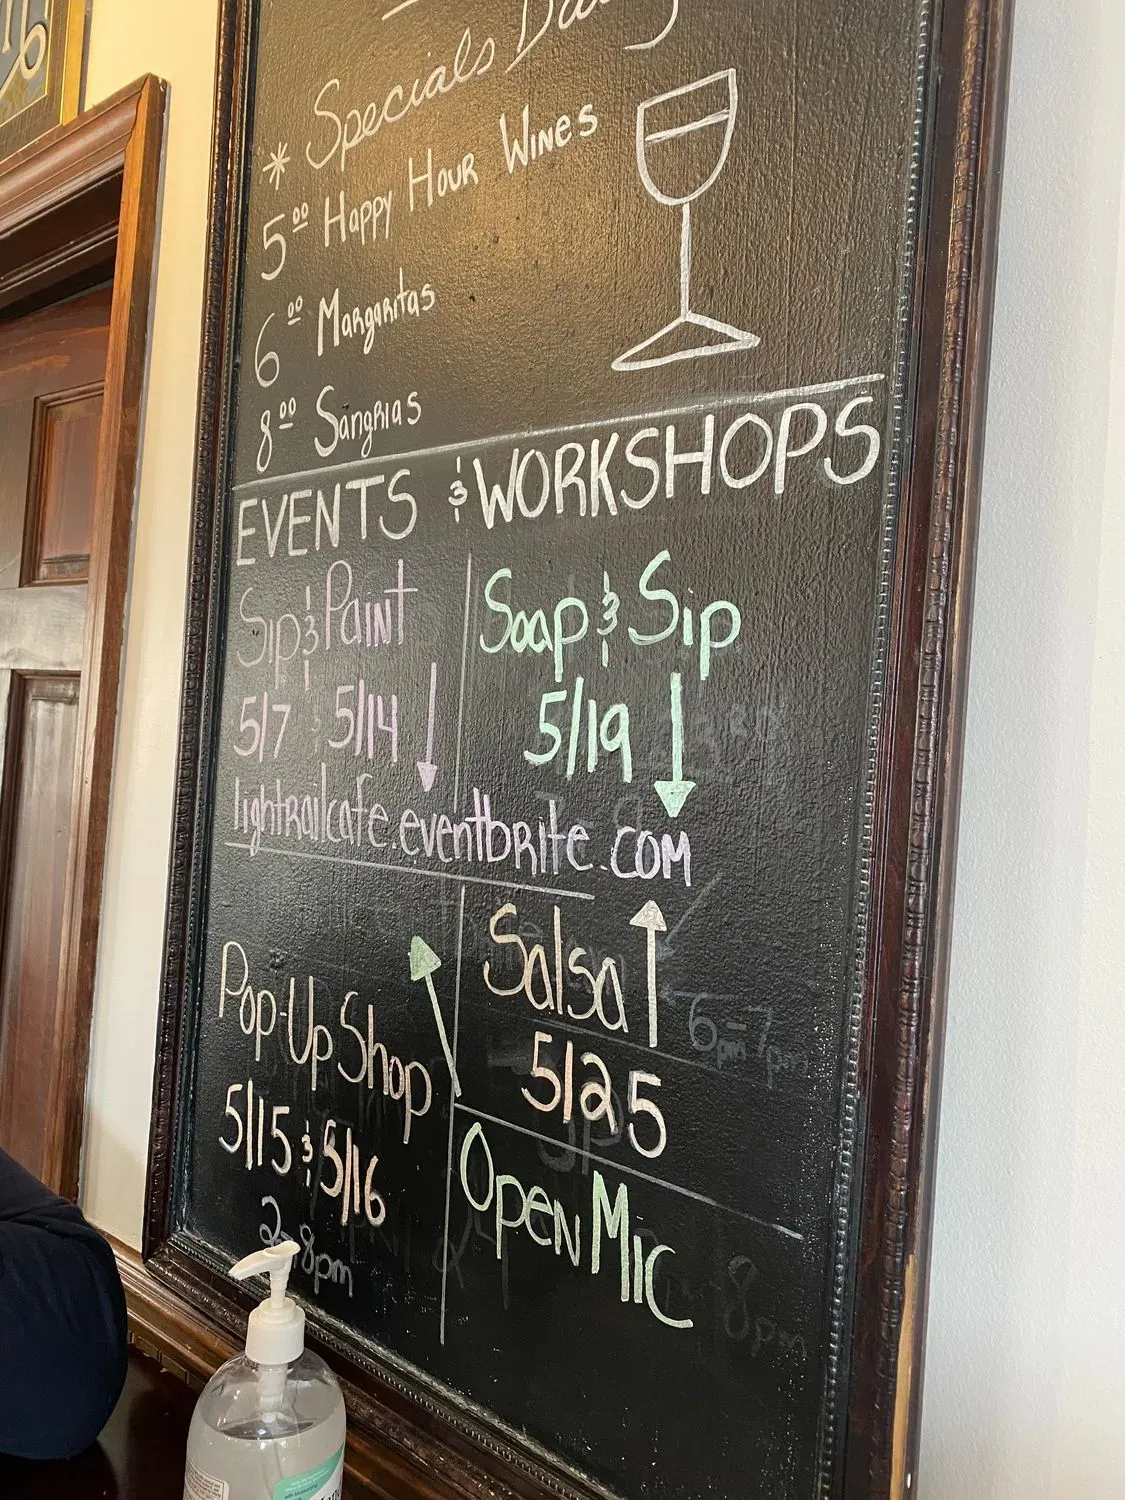 * Specials Daily
5⁰⁰ Happy Hour Wines
6⁰⁰ Margaritas
8⁰⁰ Sangrias
EVENTS & WORKSHOPS
Sip & Paint
5/7 & 5/14
Soap & Sip
5/19
lightrailcafe.eventbrite.com
Pop-Up Shop
5/15 & 5/16
2-8pm
Salsa
5/25
6pm-7pm
Open Mic
8pm